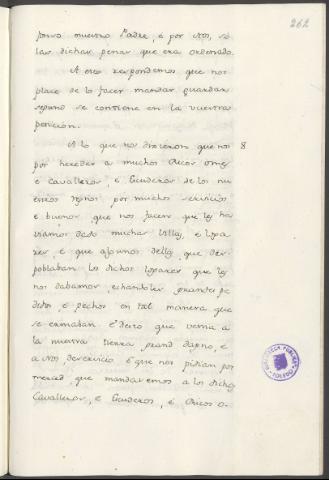 262
fonso nuestro Padre, é por Nos, só
las dichas penas que era ordenado.
A esto respondemos que nos
place de lo facer mandar guardar
segund se contiene en la vuestra
peticion.
A lo que nos dixeron que nos 8
por heredar a muchos Ricos omes
e Cavalleros, e Escuderos de los nu
estros regnos por muchos servicios
e buenos que nos facen que les ha
viamos dado muchas Villas, e Luga
res, e que algunos dellos que des
poblaban los dichos logares que les
nos dabamos, echandoles grantes pe
didos, e pechos en tal manera que
se ermaban. E desto que venia á
la nuestra tierra grand dapno, é
a Nos, deservicio. E que nos pidian por
merced, que mandasemos a los dichos
Cavalleros, e Escuderos, é Ricos o-
BIBLIOTECA PUBLICA
TOLEDO